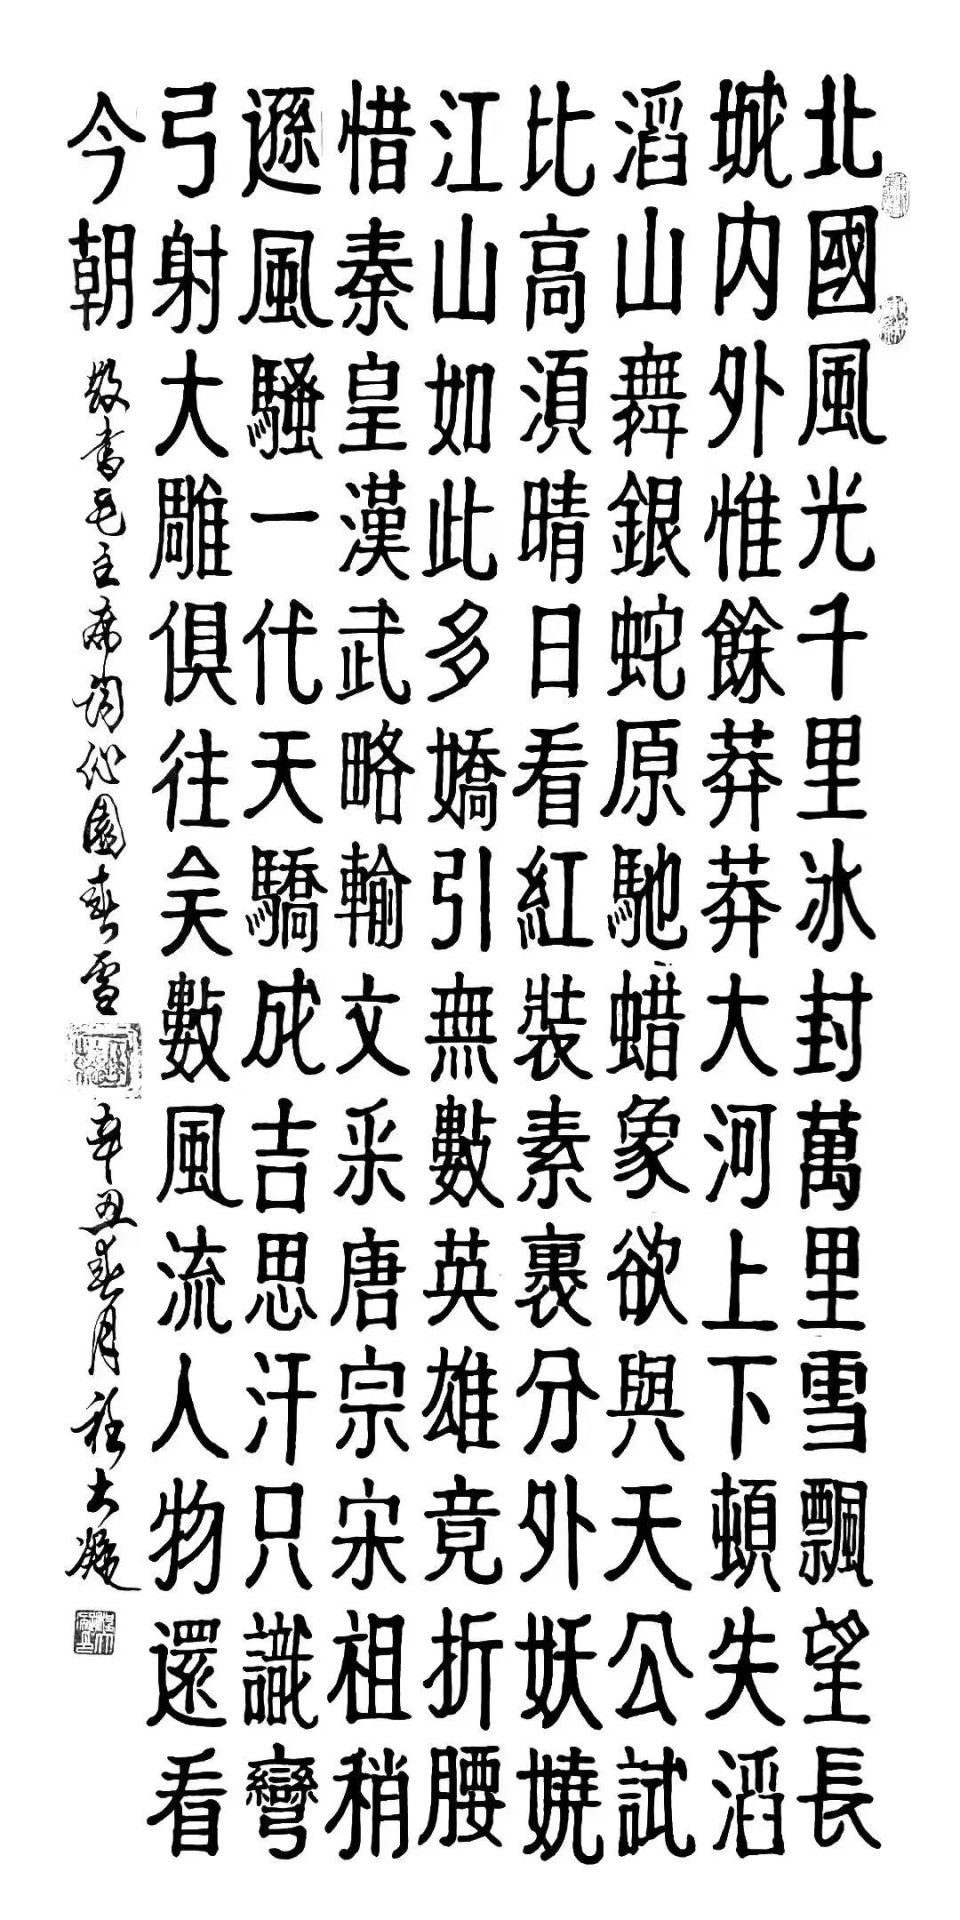 北國風光千里冰封萬里雪飄望長
城内外惟餘莽莽大河上下頓失滔
滔山舞銀蛇原馳蜡象欲與天公試
比高須晴日看紅裝素裹分外妖嬈
江山如此多嬌引無數英雄竟折腰
惜秦皇漢武略輸文采唐宗宋祖稍
遜風騷一代天驕成吉思汗只識彎
弓射大雕俱往矣數風流人物還看
今朝 敬書毛主席詞沁園春雪 辛丑春月程大